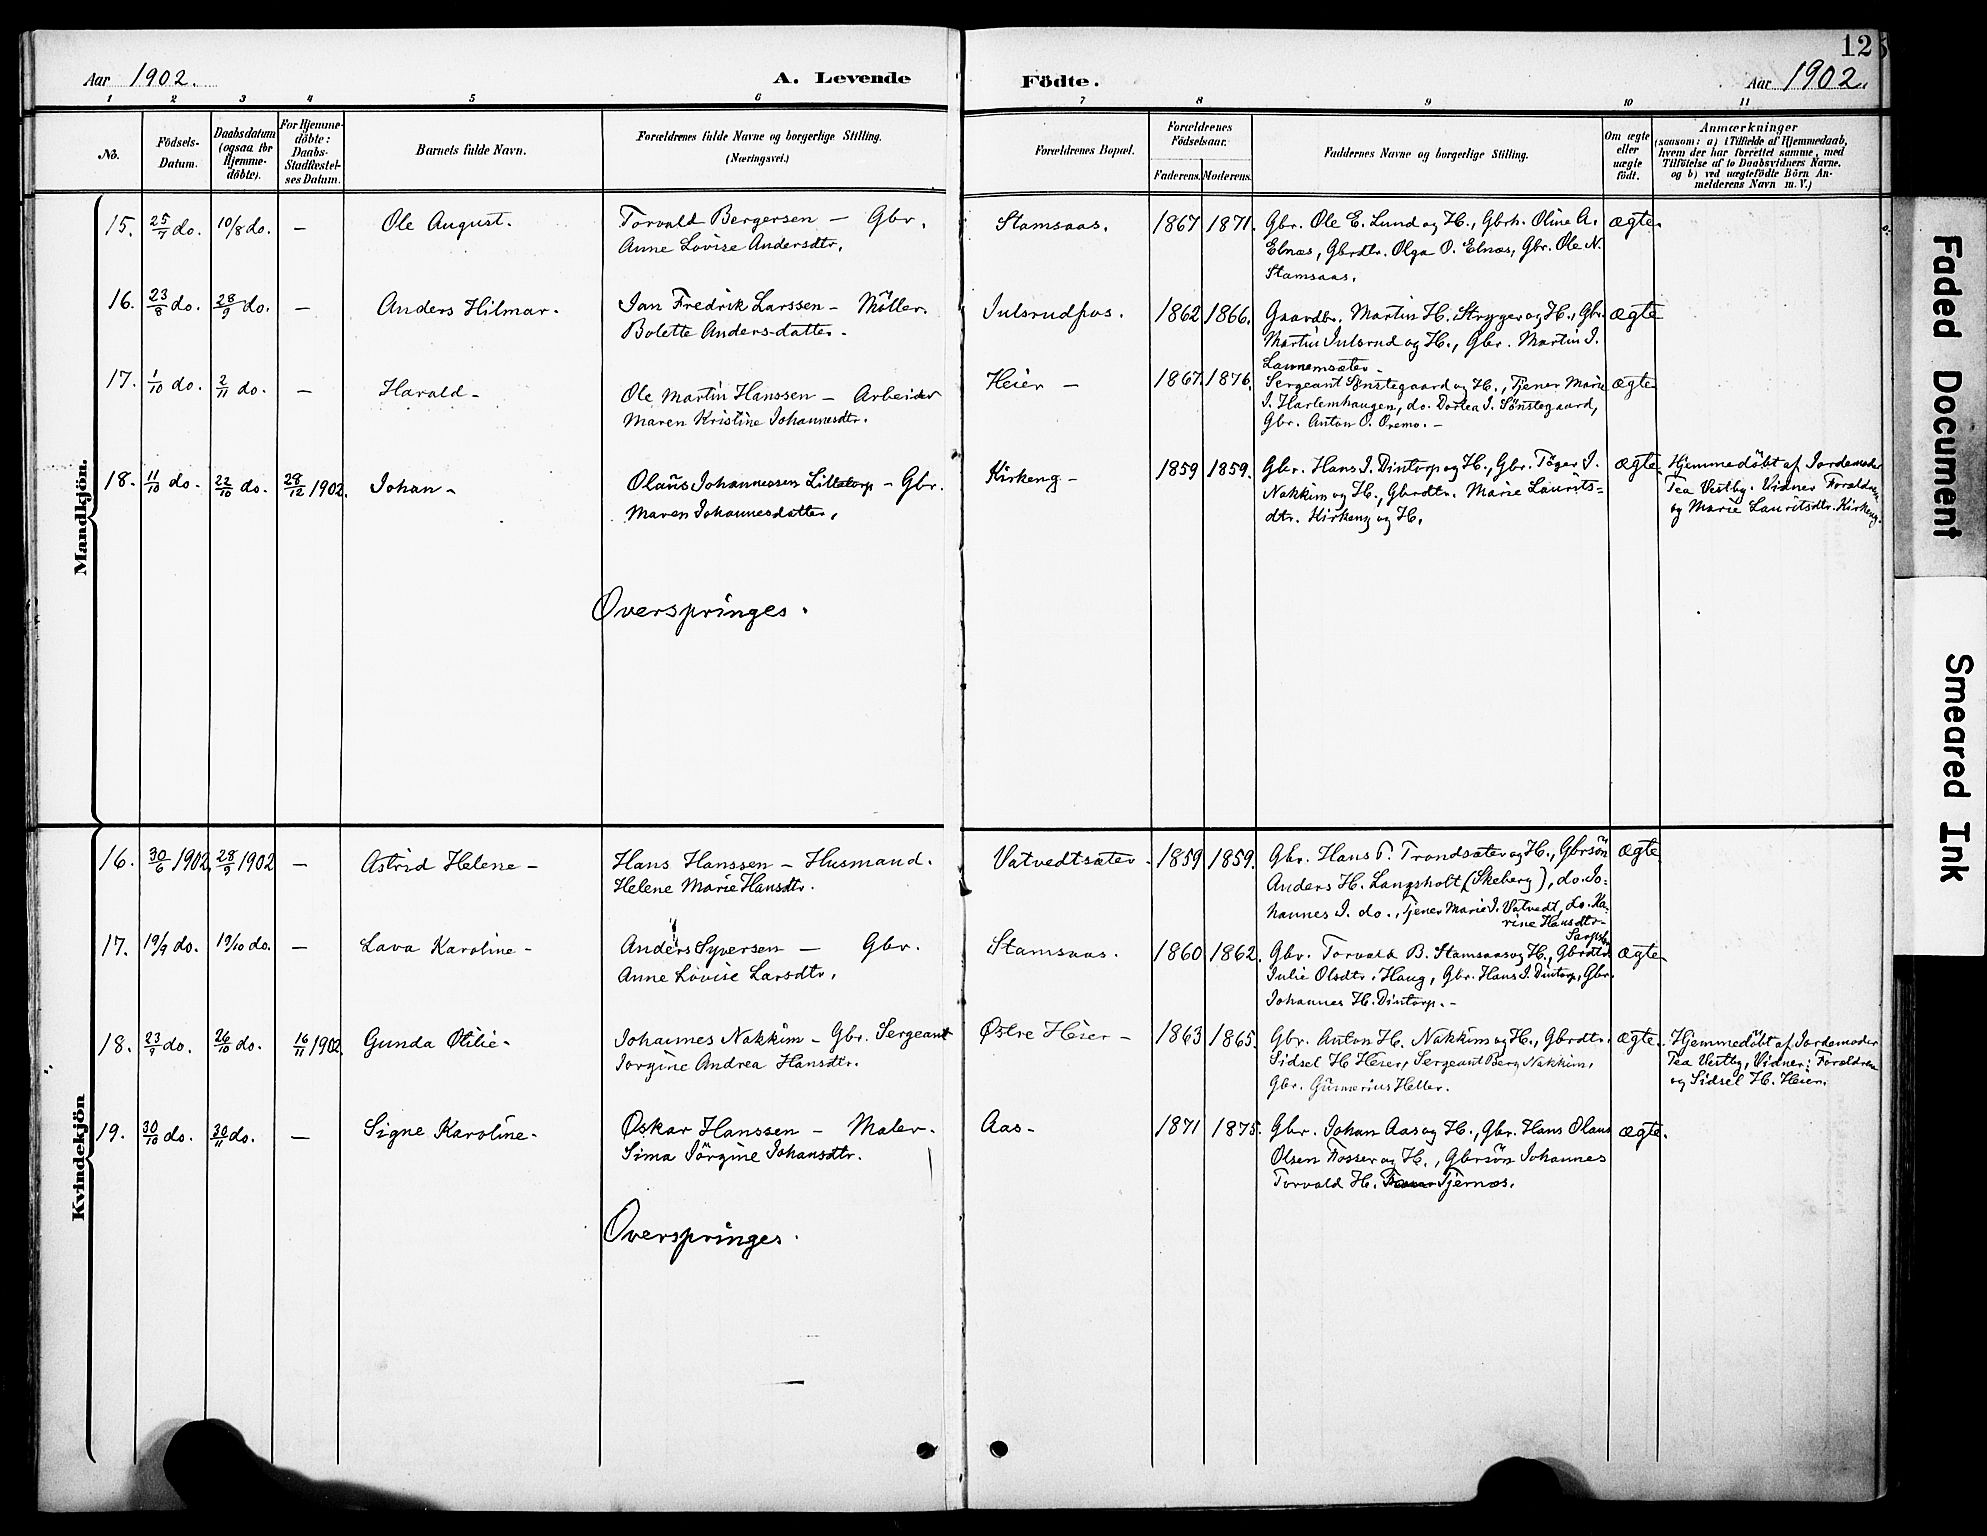 12
Aar 1902.
A. Levende
Födte.
Aar 1902.
1 2 3 4 5 6 7 8 9 10 11
No.
Födsels-Datum.
Daabsdatum (ogsaa for Hjemmedöbte).
For Hjemmedöbte: Daabs-Stadfæstelses Datum.
Barnets fulde Navn.
Forældrenes fulde Navne og borgerlige Stilling.
(Næringsvei.)
Forældrenes Bopæl.
Forældrenes Födselsaar.
Faderens. Moderens.
Faddernes Navne og borgerlige Stilling.
Om ægte eller uægte födt.
Anmærkninger
(saasom: a) i Tilfælde af Hjemmedaab,
hvem der har forrettet samme, med
Tilföielse af to Daabsvidners Navne,
og b) ved uægtefödte Börn An-
melderens Navn m. V.)
Mandkjön.
15. 25/7 do. 10/8 do. – Ole August. Torvald Bergersen – Gbr. Stamsaas. 1867 1871. Gbr. Ole E. Lund og H., Gbrk. Oline A. ægte.
Anne Lovise Andersdtr. Elnæs, Gbrdtr. Olga O. Elnæs, Gbr. Ole N.
Stamsaas.
16. 23/8 do. 28/9 do. – Anders Hilmar. Jan Fredrik Larssen – Möller. Julsrudfos. 1862 1866. Gaardbr. Martin H. Stryger og H., Gbr. ægte
Bolette Anders-datter. Martin Julsrud og H., Gbr. Martin J.
17. 1/10 do. 2/11 do. – Harald – Ole Martin Hanssen – Arbeider Heier – 1867 1876. Sergeant Sønstegaard og H., Tjener Marie ægte
Maren Kristine Johannesdtr. J. Harlemhaugen, do. Dortea J. Sønstegaard,
Gbr. Anton O. Oremo. –
18. 11/10 do. 22/10 do. 28/12 1902. Johan – Olaus Johannessen Lilletorp – Gbr. Kirkeng – 1859 1859. Gbr. Hans J. Dintorp og H., Gbr. Töger J. ægte. Hjemmedöbt af Jordemoder
Maren Johannesdatter. Nakkim og H., Gbrdtr. Marie Laurits= Tea Vestby. Vidner Forældrene
dtr. Kirkeng og H. og Marie Lauritsdtr. Kirkeng.
Overspringes.
Kvindekjön
16. 30/6 1902 28/9 1902 – Astrid Helene – Hans Hanssen – Husmand. Vatvedtsæter. 1859 1859. Gbr. Hans P. Trondsæter og H., Gbrsön ægte
Helene Marie Hansdtr. Anders H. Langsholt (Skeberg), do. Jo=
hannes J. do., Tjener Marie J. Vatvedt, do. Ka-
rine Hansdtr –
17. 19/9 do. 19/10 do. – Lava Karoline – Anders Syversen – Gbr. Stamsaas. 1860 1862. Gbr. Torvald B. Stamsaas og H., Gbrdtr. ægte
Anne Lovise Larsdtr. Julie Olsdtr. Haug, Gbr. Hans J. Dintorp, Gbr.
Johannes H. Dintorp. –
18. 23/9 do. 26/10 do. 16/11 1902. Gunda Otilie – Johannes Nakkim – Gbr. Sergeant Østre Heier – 1863 1865. Gbr. Anton H. Nakkim og H., Gbrdtr. ægte. Hjemmedöbt af Jordemoder
Jorgine Andrea Hansdtr. Sidsel H Heier, Sergeant Berg Nakkim, Tea Vestby, Vidner: Forældrene
Gbr. Gunnerius Heller. og Sidsel H. Heier.
19. 30/10 do. 30/11 do. – Signe Karoline – Oskar Hanssen – Maler. Aas – 1871 1875. Gbr. Johan Aas og H., Gbr. Hans Olaus ægte.
Sima Jörgine Johansdtr. Olsen Fosser og H., Gbrsön Johannes
Torvald H. Tjernæs.
Overspringes.
Faded Document
Smeared Ink